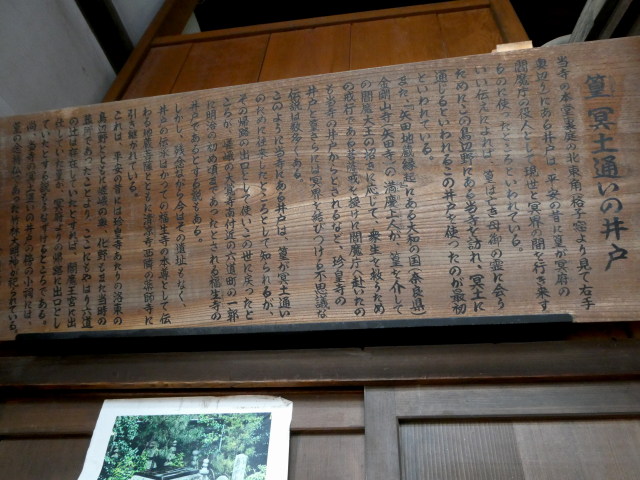 篁 冥土通いの井戸
当寺の本堂裏庭の北東角、格子窓より見て右手
奥辺りにある井戸は、平安の昔に篁が冥府の
閻魔庁の役人として現世と冥界の間を行き来す
るのに使ったところといわれている。
いい伝えによれば、篁はとき母御の霊に会う
ためにこの鳥辺野にある当寺を訪れ、冥土に
通じるといわれるこの井戸を使ったのが最初
といわれている。
また「矢田地蔵縁起」にある大和の国(奈良県)
金剛山寺(矢田寺)の満慶上人が、篁を介して
の閻魔大王の招請に応じて、衆生を救うため
の戒行である菩薩戒を授けに閻魔庁へ赴いたの
も当寺の井戸からとされるなど、珍皇寺の
井戸と篁さらには冥界を結びつける不思議な
伝説は数多くある。
このように当寺にある井戸は、篁が冥土通い
のために往き来にしたところとして知られるが、
その帰路の出口として使いこの世に戻ったと
ころが、嵯峨の大覚寺南付近の六道町の一郭
に明治の初め頃まであったとされる福生寺の
井戸であるとする説である。
しかし、残念ながら今はその遺址もなく、
井戸の伝承はかつての福生寺の本尊として伝
わる地蔵菩薩とともに清凉寺西隣の薬師寺に
引き継がれている。
これは、平安の昔には珍皇寺あたりの洛東の
鳥辺野とともに嵯峨の奥、化野もまた当時の
墓所であったことより、ここにもやはり六道
の辻は存在していたとすれば、閻魔王宮に出
仕していた篁が、冥府よりの帰路に出口とし
ていたとする説もうなずけるところである。
尚、当寺の冥土通いの井戸の脇の小祠には、
篁の念持仏であった竹林大明神が祀られている。